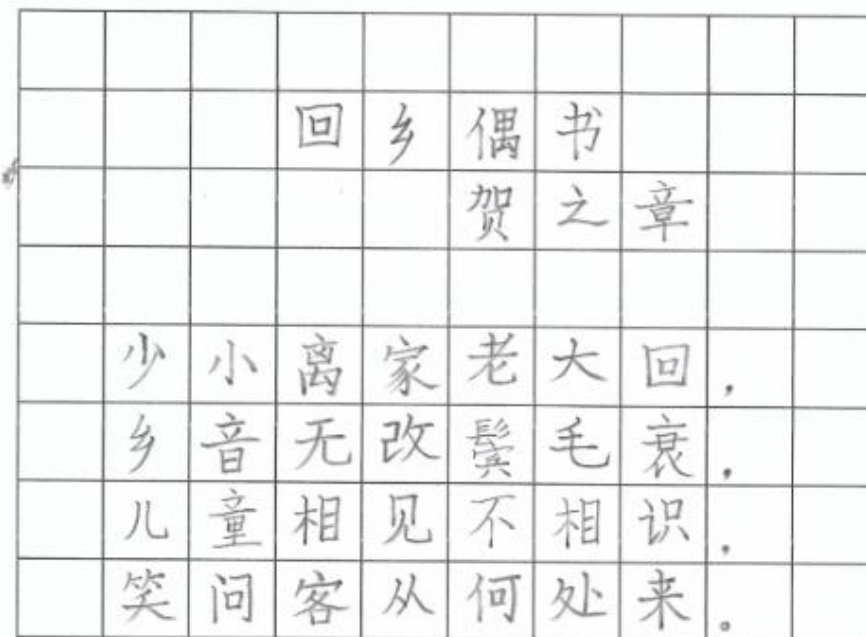 回乡偶书
贺之章
少小离家老大回，
乡音无改鬓毛衰，
儿童相见不相识，
笑问客从何处来。